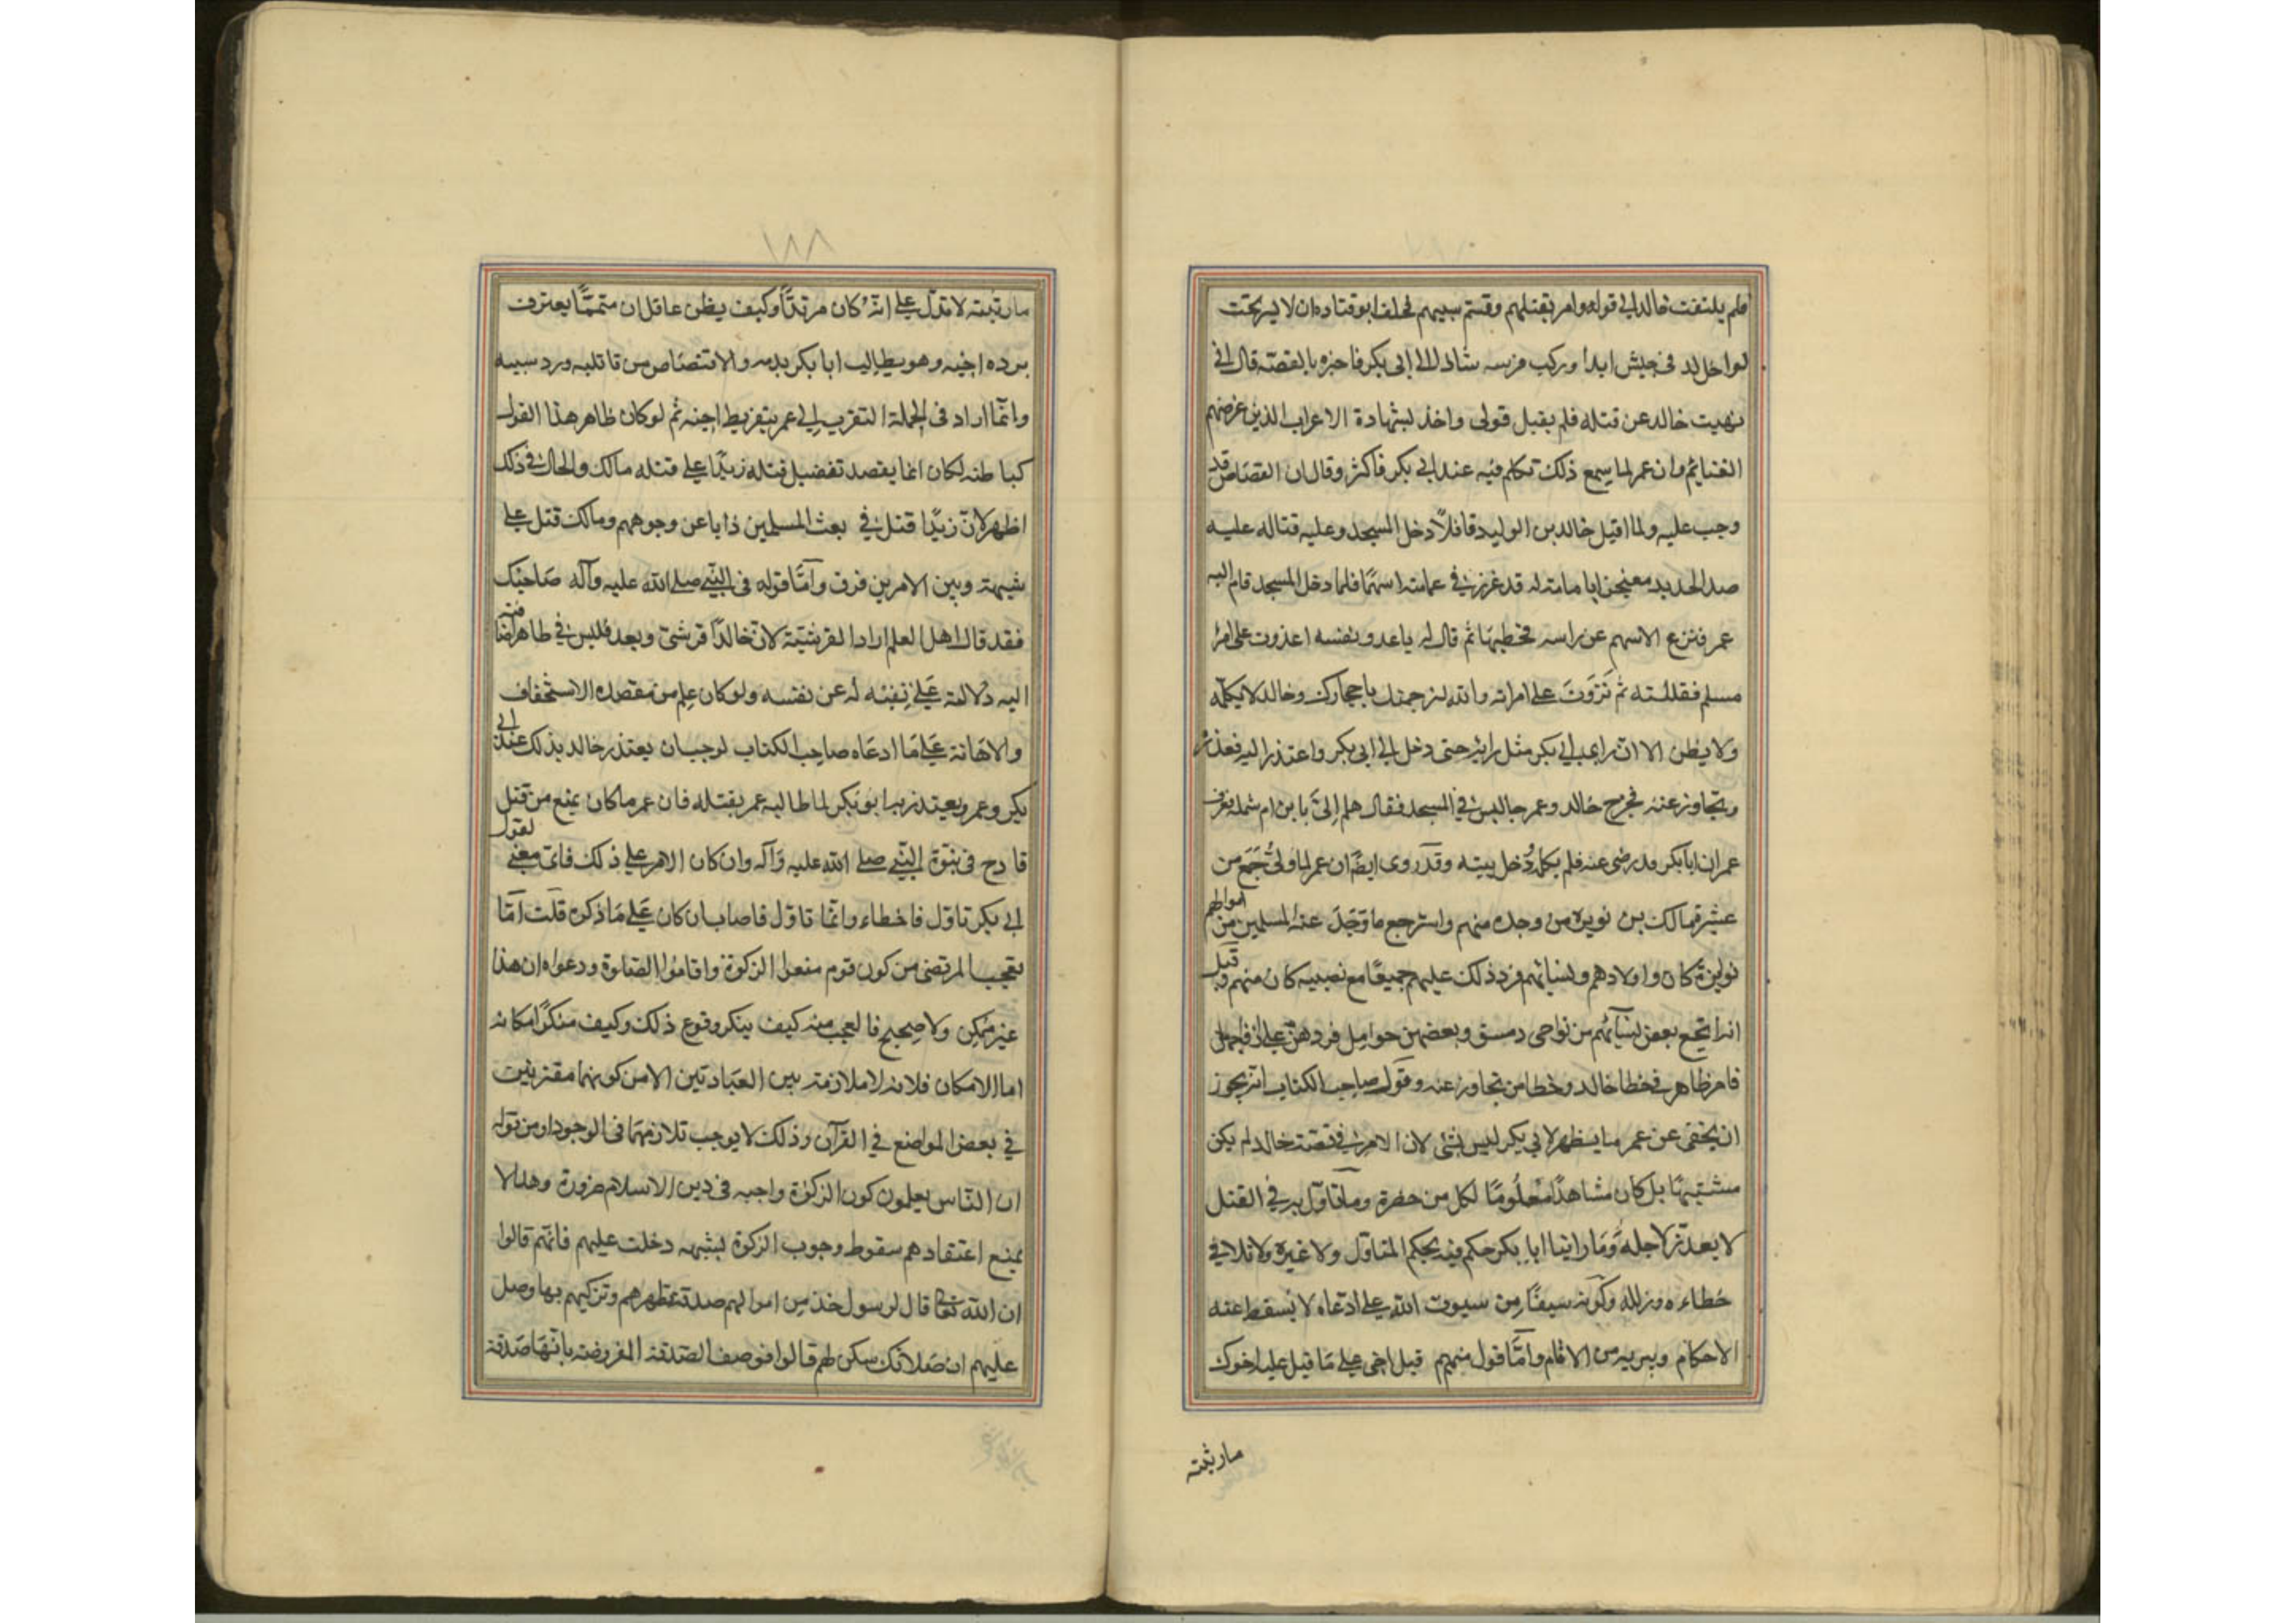 فلم يلتفت خالد الى قوله وامر بقتلهم وقسّم سبيهم فحلف ابو قتاده ان لا يسير تحت
لواء خالد فى جيش ابدا وركب فرسه شاذا الى ابى بكر فاخبره بالقصّة قال انى
نهيت خالد عن قتله فلم يقبل قولى واخذ بشهادة الاعراب الذين غرضهم
الغنايم وان عمر لما سمع ذلك تكلم فيه عند ابى بكر فاكثر وقال ان القصاص قد
وجب عليه ولما اقبل خالد بن الوليد قافلاً دخل المسجد وعليه قباله عليه
صدا الحديد معتجرا بعمامة له قد غرز فى عمامته اسهمًا فلما دخل المسجد قام اليه
عمر فنزع الاسهم عن راسه فحطمها ثم قال له يا عدو نفسه اعدوت على امرا
مسلم فقتلته ثم نَزَوتَ على امراته والله لنرجمنك باحجارك وخالد لا يكلمه
ولا يظن الا ان راى ابى بكر مثل رايه حتى دخل الى ابى بكر واعتذر اليه فعذره
وتجاوز عنه فخرج خالد وعمر جالس فى المسجد فقال هلم إلىّ يا بن ام شملة فعرف
عمر ان ابا بكر قد رضى عنه فلم يكلمه ودخل بيته وقد روى ايضًا ان عمر لما ولىّ جَمَع من
عشيرة مالك بن نويرة من وجد منهم واسترجع ما وَجَدَ عند المسلمين من اموالهم
واولادهم ونسائهم فرد ذلك عليهم جميعًا مع نصيبه كان منهم وقيل
انه ارتجع بعض نسآئهم من نواحى دمسق وبعضهن حوامل فردهن على ازواجهن
فامر ظاهر فى خطا خالد وخطا من تجاوز عنه وقول صاحب الكتاب انه يجوز
ان يخفى عن عمر ما يظهر لابى بكر ليس بشئ لان الامر فى قصّة خالد لم يكن
مشتبهًا بل كان مشاهدًا معلومًا لكل من حضره وما تاوّل به فى القتل
لا يعذر لاجله وَمَا راينا ابا بكر حكم فيه بحكم المتاوّل ولا غيره ولا تلافى
خطاءه وزلله وكونه سيفًا من سيوف الله على ادعاه لا يسقط عنه
الاحكام ويبريه من الاثام وامّا قول متمم قيل اخى على مَا قيل عليه اخوك
ما رثيته
١٨٨
ما رثيته لا تدّل على انّه كان مرتدًّا وكيف يظن عاقل ان متممًّا يعترف
بردة اخيه وهو يطالب ابا بكر بدمه والاقتصاص من قاتليه ورد سبيه
وانمّا اراد فى الجملة التقرب الى عمر بتقريظ اخيه ثم لو كان ظاهر هذا القول
كباطنه لكان انما يقصد تفضيل قتله زيدًا على قتله مالك والحال فى ذلك
اظهر لانّ زيدًا قتل فى بعث المسلمين ذابا عن وجوههم ومالك قتل على
شبهة وبين الامرين فرق وامّا قوله فى النّبى صلى الله عليه وآله صَاحبك
فقد قال اهل العلم اراد القرشيّة لانّ خالدًا قرشىّ وبعد فليس فى ظاهر اضافته
اليه دلالة عَلى نفيه له عن نفسه ولو كان علم من مقصده الاستخفاف
والاهانة عَلى مَا ادعَاه صاحب الكتاب لوجب ان يعتذر خالد بذلك عند ابى
بكر وعمر ويعتذر به ابو بكر لما طالبه عمر بقتله فان عمر ما كان يمنع من قتل
قادح فى نبوّة النّبى صلى الله عليه وآله وان كان الامر على ذلك فاىّ معنى لقول
ابى بكر تاوّل فاخطاء وانما تاوّل فاصاب ان كان عَلى مَا ذكره قلت امّا
تعجب المرتضى من كون قوم منعوا الزكوة واقاموا الصّلوة ودعواه ان هذا
غير ممكن ولا صحيح فالعجب منه كيف ينكر وقوع ذلك وكيف منكرًا مكانه
اما الامكان فلانه لا ملازمة بين العبادتين الا من كونهما مقترنتين
فى بعض المواضع فى القرآن وذلك لا يوجب تلازمهما فى الوجود او من قوله
ان النّاس يعلمون كون الزكوة واجبه فى دين الاسلام ضرورة وهذا لا
يمنع اعتقادهم سقوط وجوب الزكوة لشبهه دخلت عليهم فانّهم قالوا
ان الله تعالى قال لرسوله خذ من اموالهم صدقة تطهرهم وتزكيهم بها وصل
عليهم ان صلاتك سكن لهم قالوا فوصف الصّدقة المفروضة بانّها صَدقة